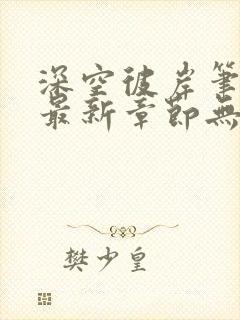 深空彼岸笔
最新章節無
樊少皇